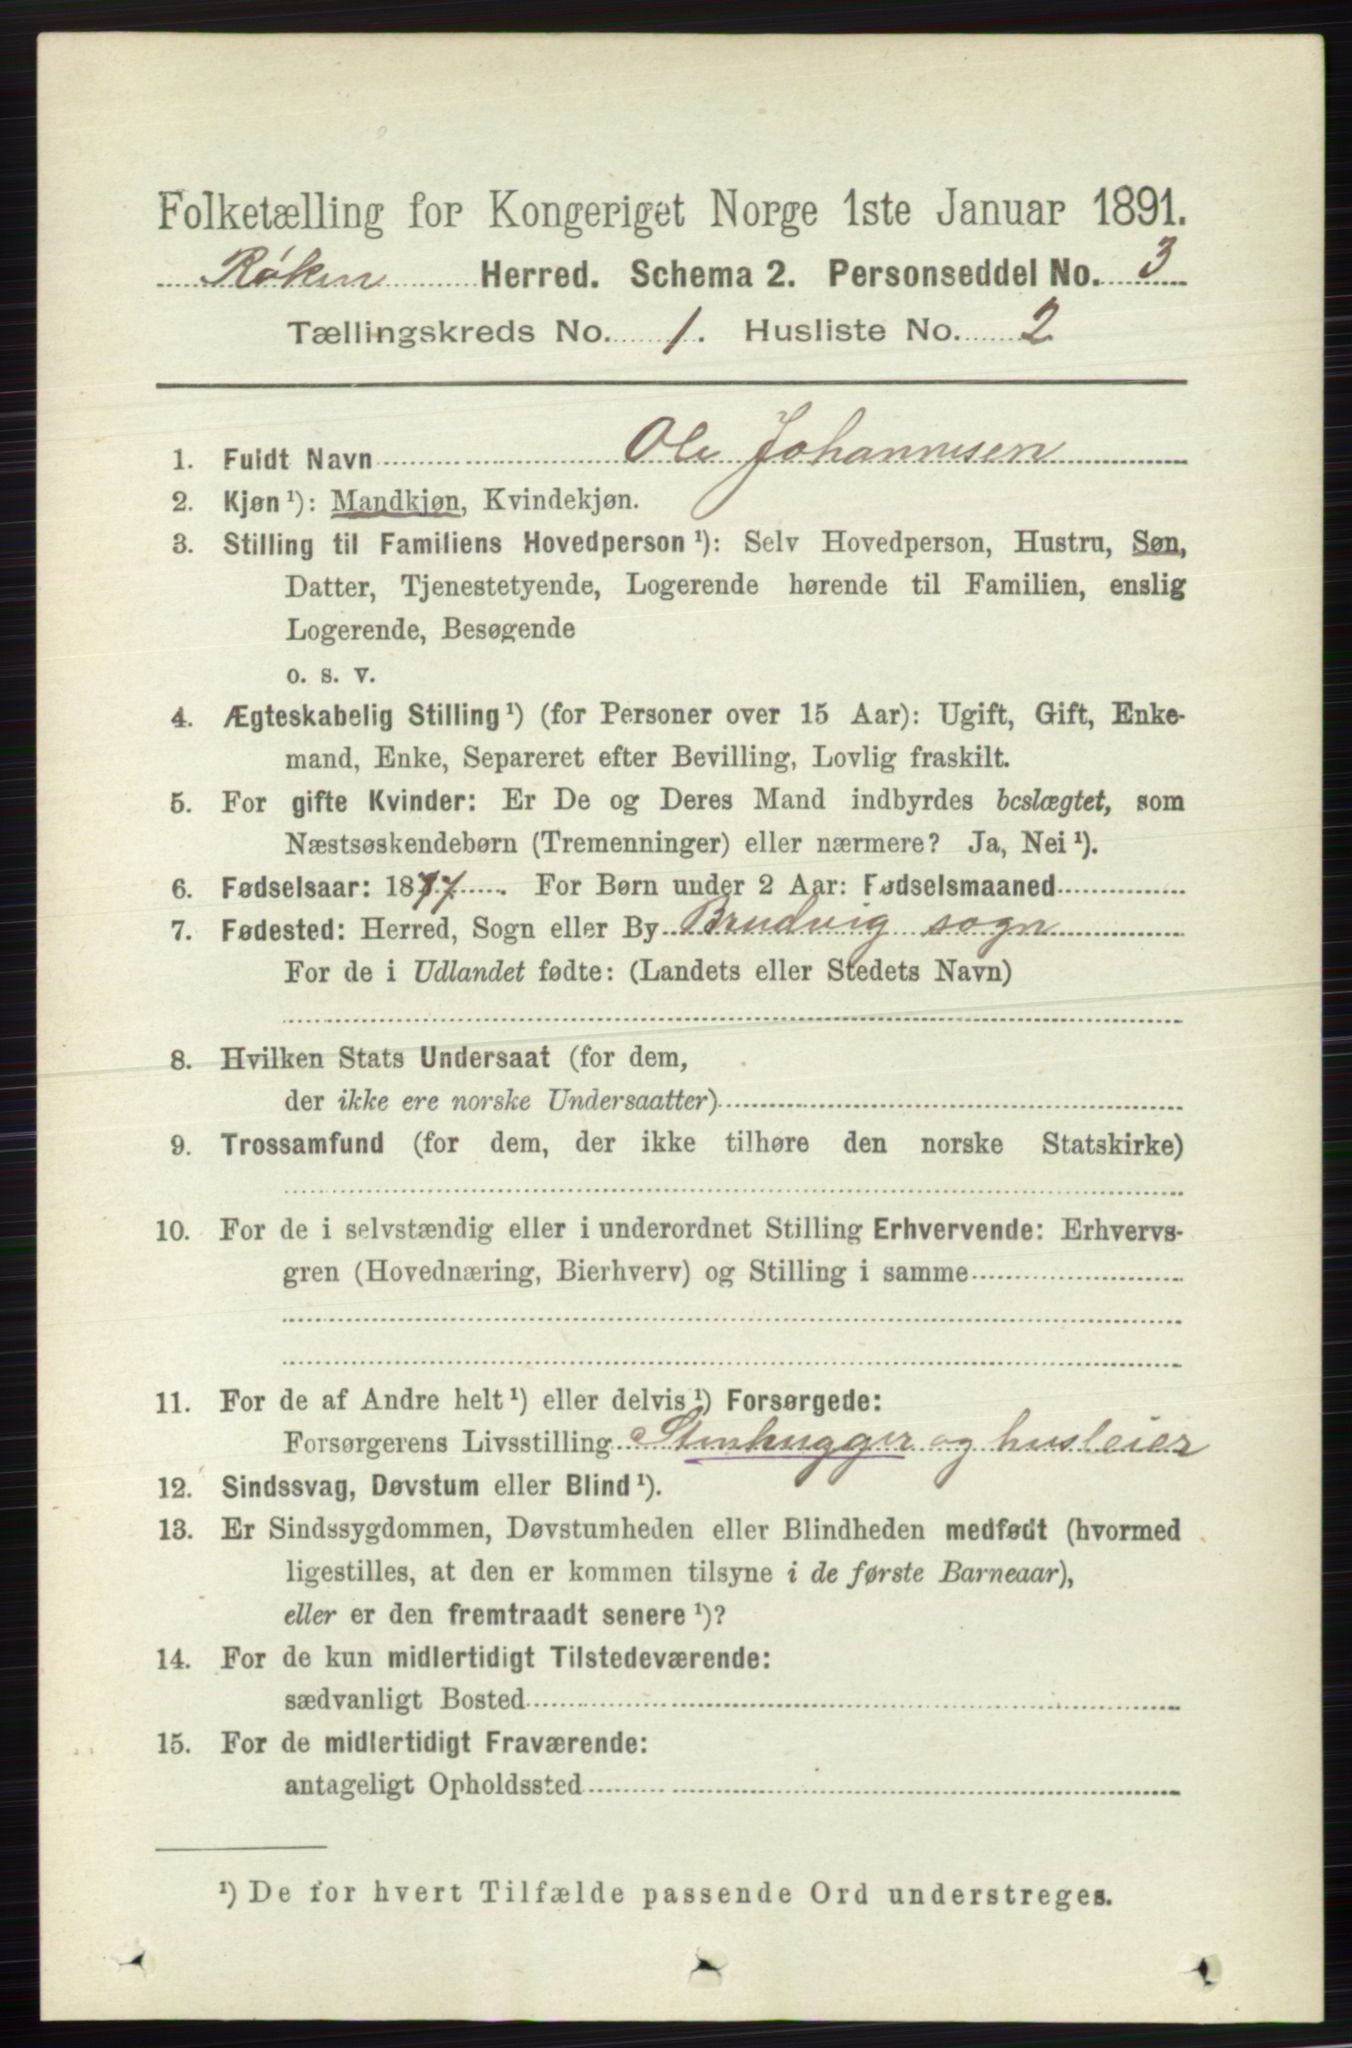 Folketælling for Kongeriget Norge 1ste Januar 1891.
Røken Herred. Schema 2. Personseddel No. 3
Tællingskreds No. 1. Husliste No. 2
1. Fuldt Navn Ole Johannesen
2. Kjøn ¹): Mandkjøn, Kvindekjøn.
3. Stilling til Familiens Hovedperson ¹): Selv Hovedperson, Hustru, Søn,
Datter, Tjenestetyende, Logerende hørende til Familien, enslig
Logerende, Besøgende
o. s. v.
4. Ægteskabelig Stilling ¹) (for Personer over 15 Aar): Ugift, Gift, Enke-
mand, Enke, Separeret efter Bevilling, Lovlig fraskilt.
5. For gifte Kvinder: Er De og Deres Mand indbyrdes beslægtet, som
Næstsøskendebørn (Tremenninger) eller nærmere? Ja, Nei ¹).
6. Fødselsaar: 1877. For Børn under 2 Aar: Fødselsmaaned
7. Fødested: Herred, Sogn eller By Brudvig sogn
For de i Udlandet fødte: (Landets eller Stedets Navn)
8. Hvilken Stats Undersaat (for dem,
der ikke ere norske Undersaatter)
9. Trossamfund (for dem, der ikke tilhøre den norske Statskirke)
10. For de i selvstændig eller i underordnet Stilling Erhvervende: Erhvervs-
gren (Hovednæring, Bierhverv) og Stilling i samme
11. For de af Andre helt ¹) eller delvis ¹) Forsørgede:
Forsørgerens Livsstilling Stenhugger og husleier
12. Sindssvag, Døvstum eller Blind ¹).
13. Er Sindssygdommen, Døvstumheden eller Blindheden medfødt (hvormed
ligestilles, at den er kommen tilsyne i de første Barneaar),
eller er den fremtraadt senere ¹)?
14. For de kun midlertidigt Tilstedeværende:
sædvanligt Bosted
15. For de midlertidigt Fraværende:
antageligt Opholdssted
¹) De for hvert Tilfælde passende Ord understreges.